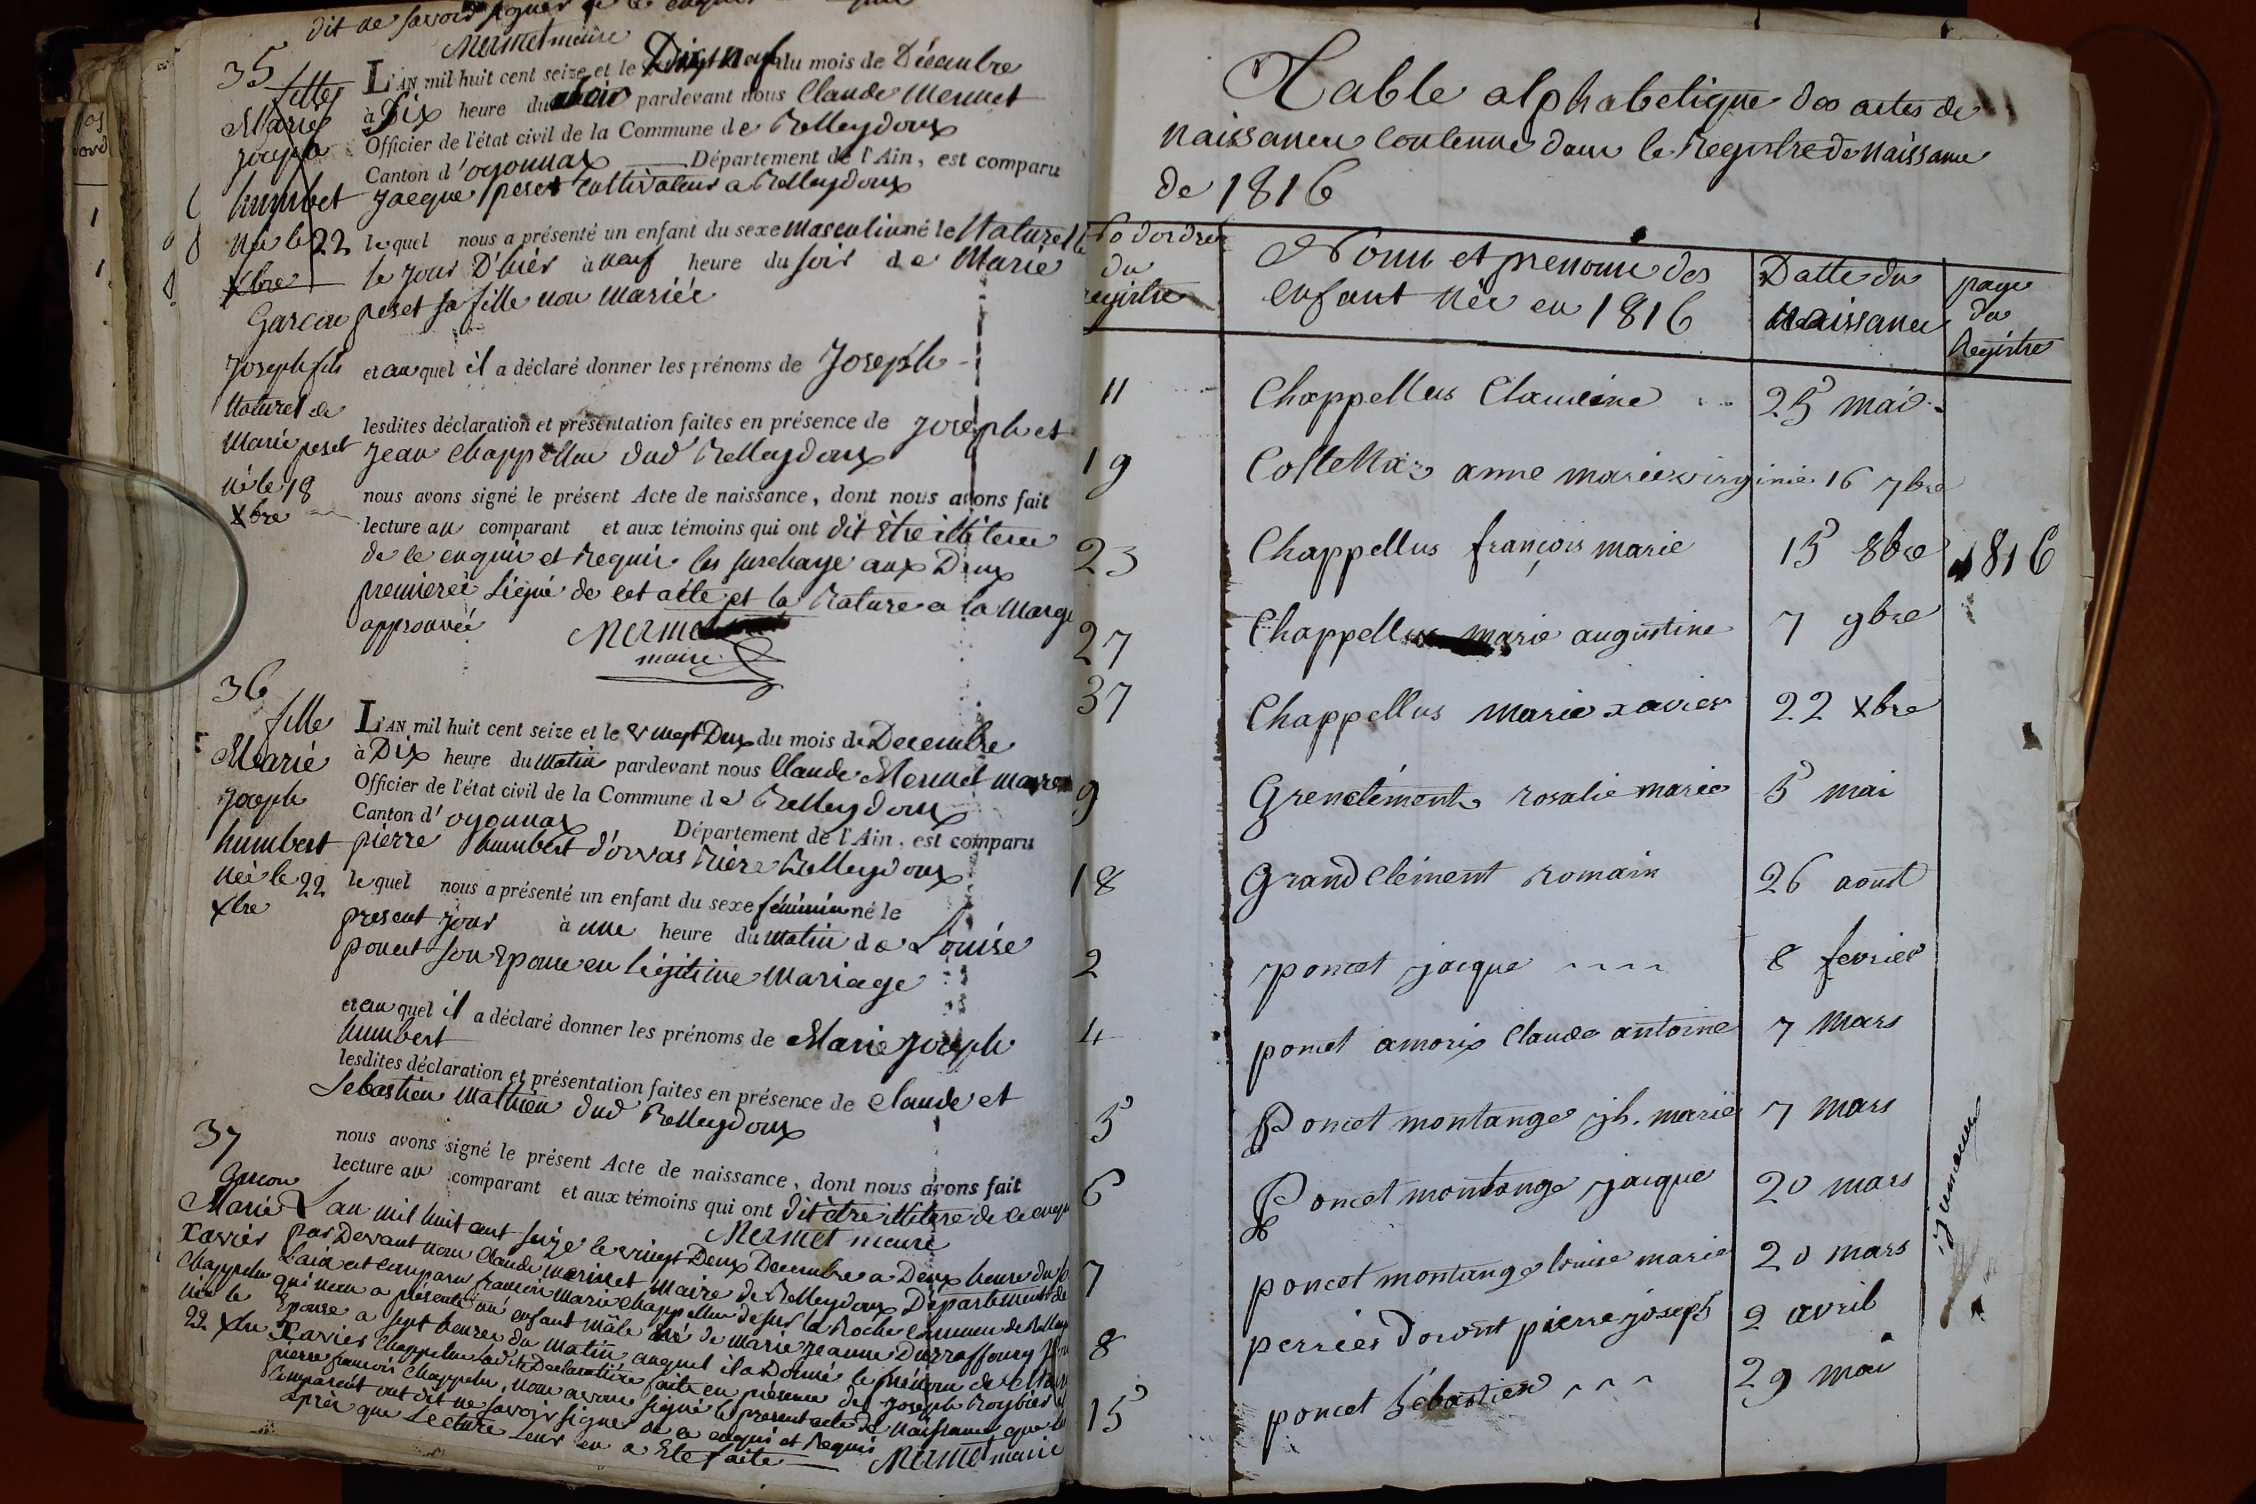 dit ne savoir signer de ce enquis
Mermet maire
35
fille
Marie
joseph
humbet
née le 22
xbre
Garcon
joseph fils
naturel de
Marie peset
né le 18
xbre
L'AN mil huit cent seize et le Dix neuf du mois de Décembre
à Six heure du soir pardevant nous Claude Mermet
Officier de l'état civil de la Commune de Belleydoux
Canton d'oyonnax Département de l'Ain, est comparu
jacque peset Cultivateur a Belleydoux
lequel nous a présenté un enfant du sexe masculin né le Naturelle
le jour D'hier à neuf heure du soir de Marie
peset sa fille non mariée
et au quel il a déclaré donner les prénoms de Joseph
lesdites déclaration et présentation faites en présence de joseph et
jean chappellu dud Belleydoux
nous avons signé le présent Acte de naissance, dont nous avons fait
lecture au comparant et aux témoins qui ont dit être illitere
de le enquis et Requis les surcharge aux Deux
premieres Ligne de cet acte et la Rature a la Marge
approuvée Mermet
maire
36
fille
Marie
joseph
humbert
née le 22
xbre
L'AN mil huit cent seize et le vingt Deux du mois de Decembre
à Dix heure du matin pardevant nous Claude Mermet maire
Officier de l'état civil de la Commune de Belleydoux
Canton d'oyonnax Département de l'Ain, est comparu
pierre humbert d'orvas Rière Belleydoux
lequel nous a présenté un enfant du sexe féminin né le
present jour à une heure du matin de Louise
poncet son Epouse en légitime mariage
et au quel il a déclaré donner les prénoms de Marie joseph
humbert
lesdites déclaration et présentation faites en présence de claude et
Sebastien Mathieu dud Belleydoux
nous avons signé le présent Acte de naissance, dont nous avons fait
lecture au comparant et aux témoins qui ont dit être illitere de ce enqu
Mermet maire
37
Garcon
Marie
Xavier
Chappellu
née le
22 xbre
L'an mil huit cent seize le vingt Deux Decembre a Deux heure du
par Devant nous Claude mermet Maire de Belleydoux Département de
L'ain est comparu francois marie chappellu desur la Roche commune de Belley
qui nous a présenté un enfant mâle né de marie jeanne Durraffourg
Epouse a sept heures du matin auquel il a Donné le prénom de Marie
Xavier Chappellu ladite Declaration faite en présence de joseph
pierre francois Chappellu, nous avons signé le present acte de naissance que
Comparent ont dit ne savoir signe de ce enquis et Requis
après que Lecture Leur en a Eté faite Mermet maire
Table alphabetique des actes de
naissance contenue dans le Registre de naissance
de 1816
No d'ordre du registre
Nom et prenom des enfant née en 1816
Datte du naissance
page du Registre
11 Chappellus Claudine 25 mai
19 Costellaz anne marie virginie 16 7bre
23 Chappellus françois marie 15 8bre 1816
27 Chappellus marie augustine 7 9bre
37 Chappellus marie xavier 22 xbre
9 Grenclément rosalie marie 5 mai
18 Grand Clément romain 26 aoust
2 poncet jacque 8 fevrier
4 poncet amorix Claude antoine 7 mars
5 Poncet montange jh. marie 7 mars
6 Poncet montange jacque 20 mars
7 poncet montange louise marie 20 mars
8 perrier doront pierre joseph 2 avril
15 poncet Sébastien 29 mai